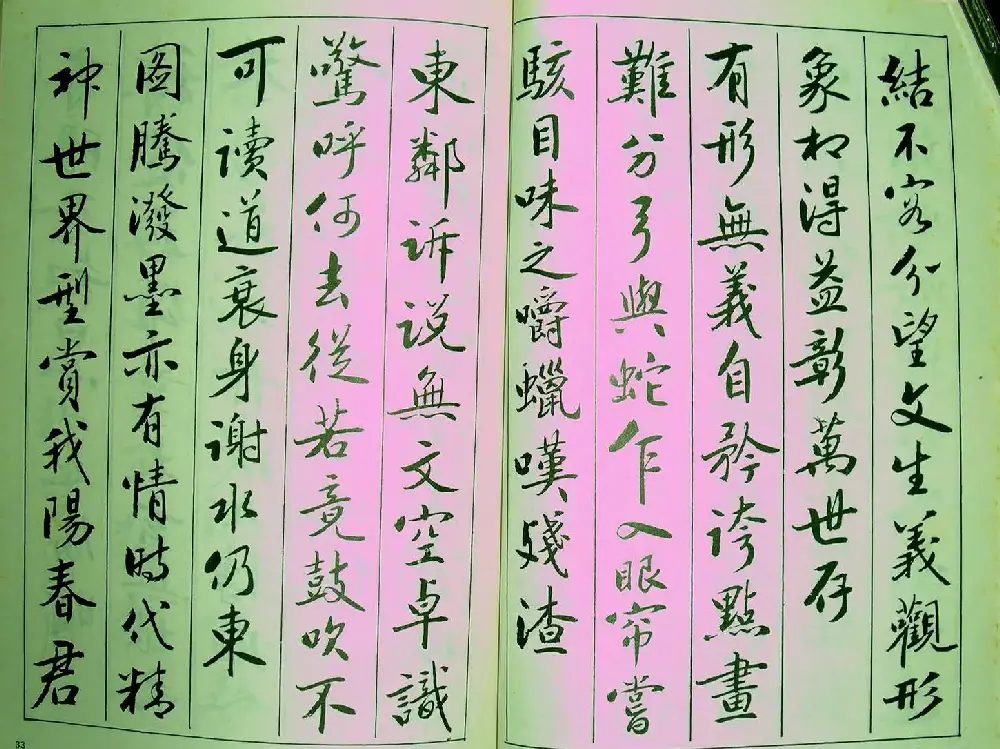 結不容分望文生義觀形
象相得益彰萬世存
有形無義自矜誇點畫
難分弓與蛇乍入眼帘嘗
駭目味之嚼蠟嘆殘渣
東鄰訴說無文空卓識
驚呼何去從若竟鼓吹不
可讀道衰身謝水仍東
圖騰潑墨亦有情時代精
神世界型賞我陽春君
33